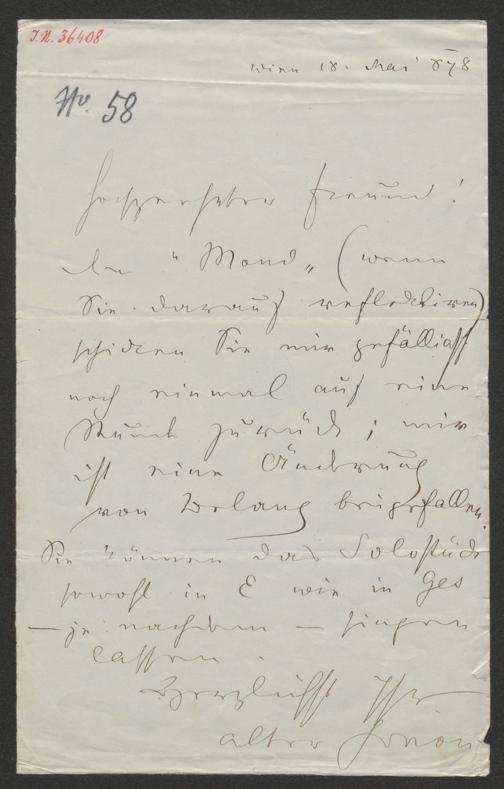 I.N. 36408
Wien 18. Mai 878
No. 58
Hochverehrter Freund!
Den "Mond" (wenn
Sie darauf reflektiren)
schicken Sie mir gefälligst
noch einmal auf eine
Stunde zurück; mir
ist eine Änderung
von Belang beigefallen.
Sie können das Solostück
sowohl in E wie in Ges
– je nachdem – singen
lassen.
Herzlichst Ihr
alter